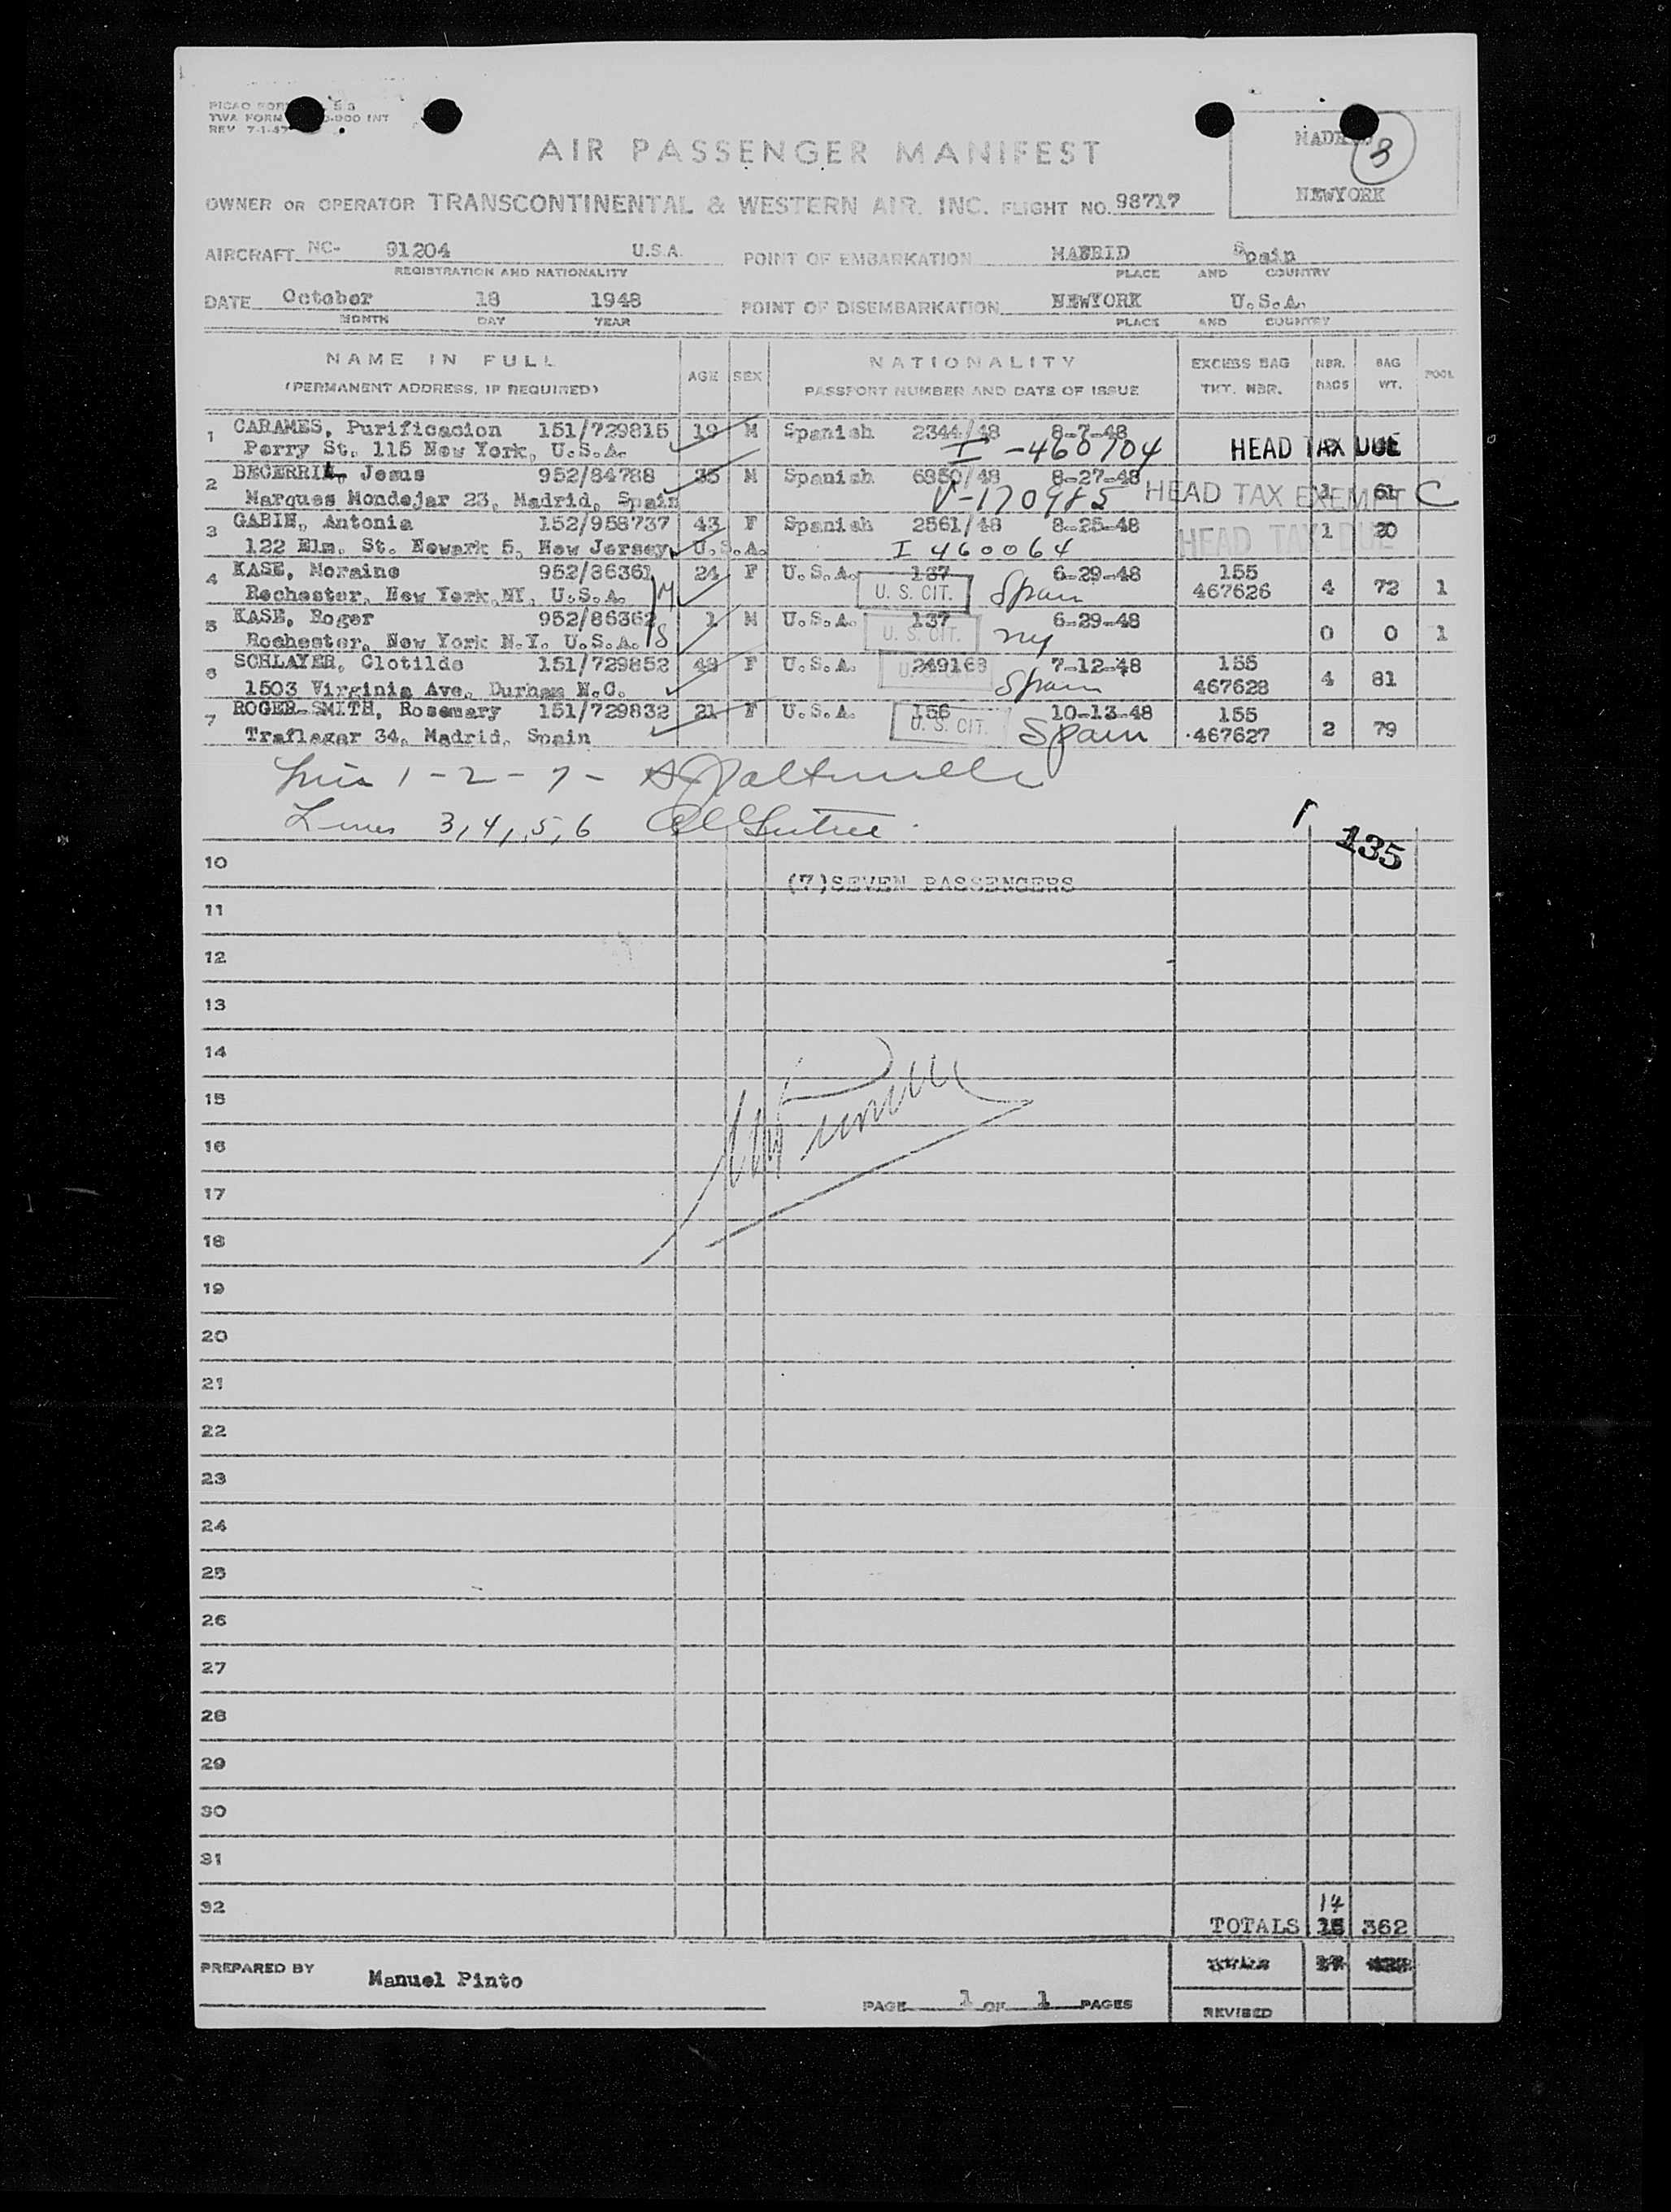 PICAO FORM 53
TWA FORM -900 INT
REV 7-1-47
MADRID
3
NEWYORK
AIR PASSENGER MANIFEST
OWNER OR OPERATOR TRANSCONTINENTAL & WESTERN AIR. INC. FLIGHT NO. 98717
AIRCRAFT NC- 91204 U.S.A. POINT OF EMBARKATION MADRID Spain
REGISTRATION AND NATIONALITY PLACE AND COUNTRY
DATE October 18 1948 POINT OF DISEMBARKATION NEWYORK U.S.A.
MONTH DAY YEAR PLACE AND COUNTRY
NAME IN FULL AGE SEX NATIONALITY EXCESS BAG NBR. BAG POOL
(PERMANENT ADDRESS, IF REQUIRED) PASSPORT NUMBER AND DATE OF ISSUE TKT. NBR. BAGS WT.
1 CARAMES, Purificacion 151/729815 19 M Spanish 2344/48 8-7-48
Perry St. 115 New York, U.S.A. I-460704 HEAD TAX DUE
2 BECERRIL, Jesus 952/84788 35 M Spanish 6850/48 8-27-48
Marques Mondejar 23, Madrid, Spain V-170985 HEAD TAX EXEMPT 1 61 C
3 GABIN, Antonia 152/958737 43 F Spanish 2561/48 8-25-48 1 20
122 Elm. St. Newark 5, New Jersey, U.S.A. I 460064 HEAD TAX DUE
4 KASE, Moraine 952/86361 24 F U.S.A. 137 6-29-48 155
Rochester, New York,NY, U.S.A. M U. S. CIT. Spain 467626 4 72 1
5 KASE, Roger 952/86362 1 M U.S.A. 137 6-29-48
Rochester, New York N.Y. U.S.A. S U. S. CIT. NY 0 0 1
6 SCHLAYER, Clotilde 151/729852 48 F U.S.A. 249163 7-12-48 155
1503 Virginia Ave. Durham N.C. U. S. CIT. Spain 467628 4 81
7 ROGER-SMITH, Rosemary 151/729832 21 F U.S.A. 156 10-13-48 155
Traflagar 34, Madrid, Spain U. S. CIT. Spain 467627 2 79
1 - 2 - 7 -
Lines 3, 4, 5, 6
135
10
(7)SEVEN PASSENGERS
11
12
13
14
15
16
17
18
19
20
21
22
23
24
25
26
27
28
29
30
31
32
14
TOTALS 15 362
PREPARED BY Manuel Pinto
PAGE 1 OF 1 PAGES
REVISED